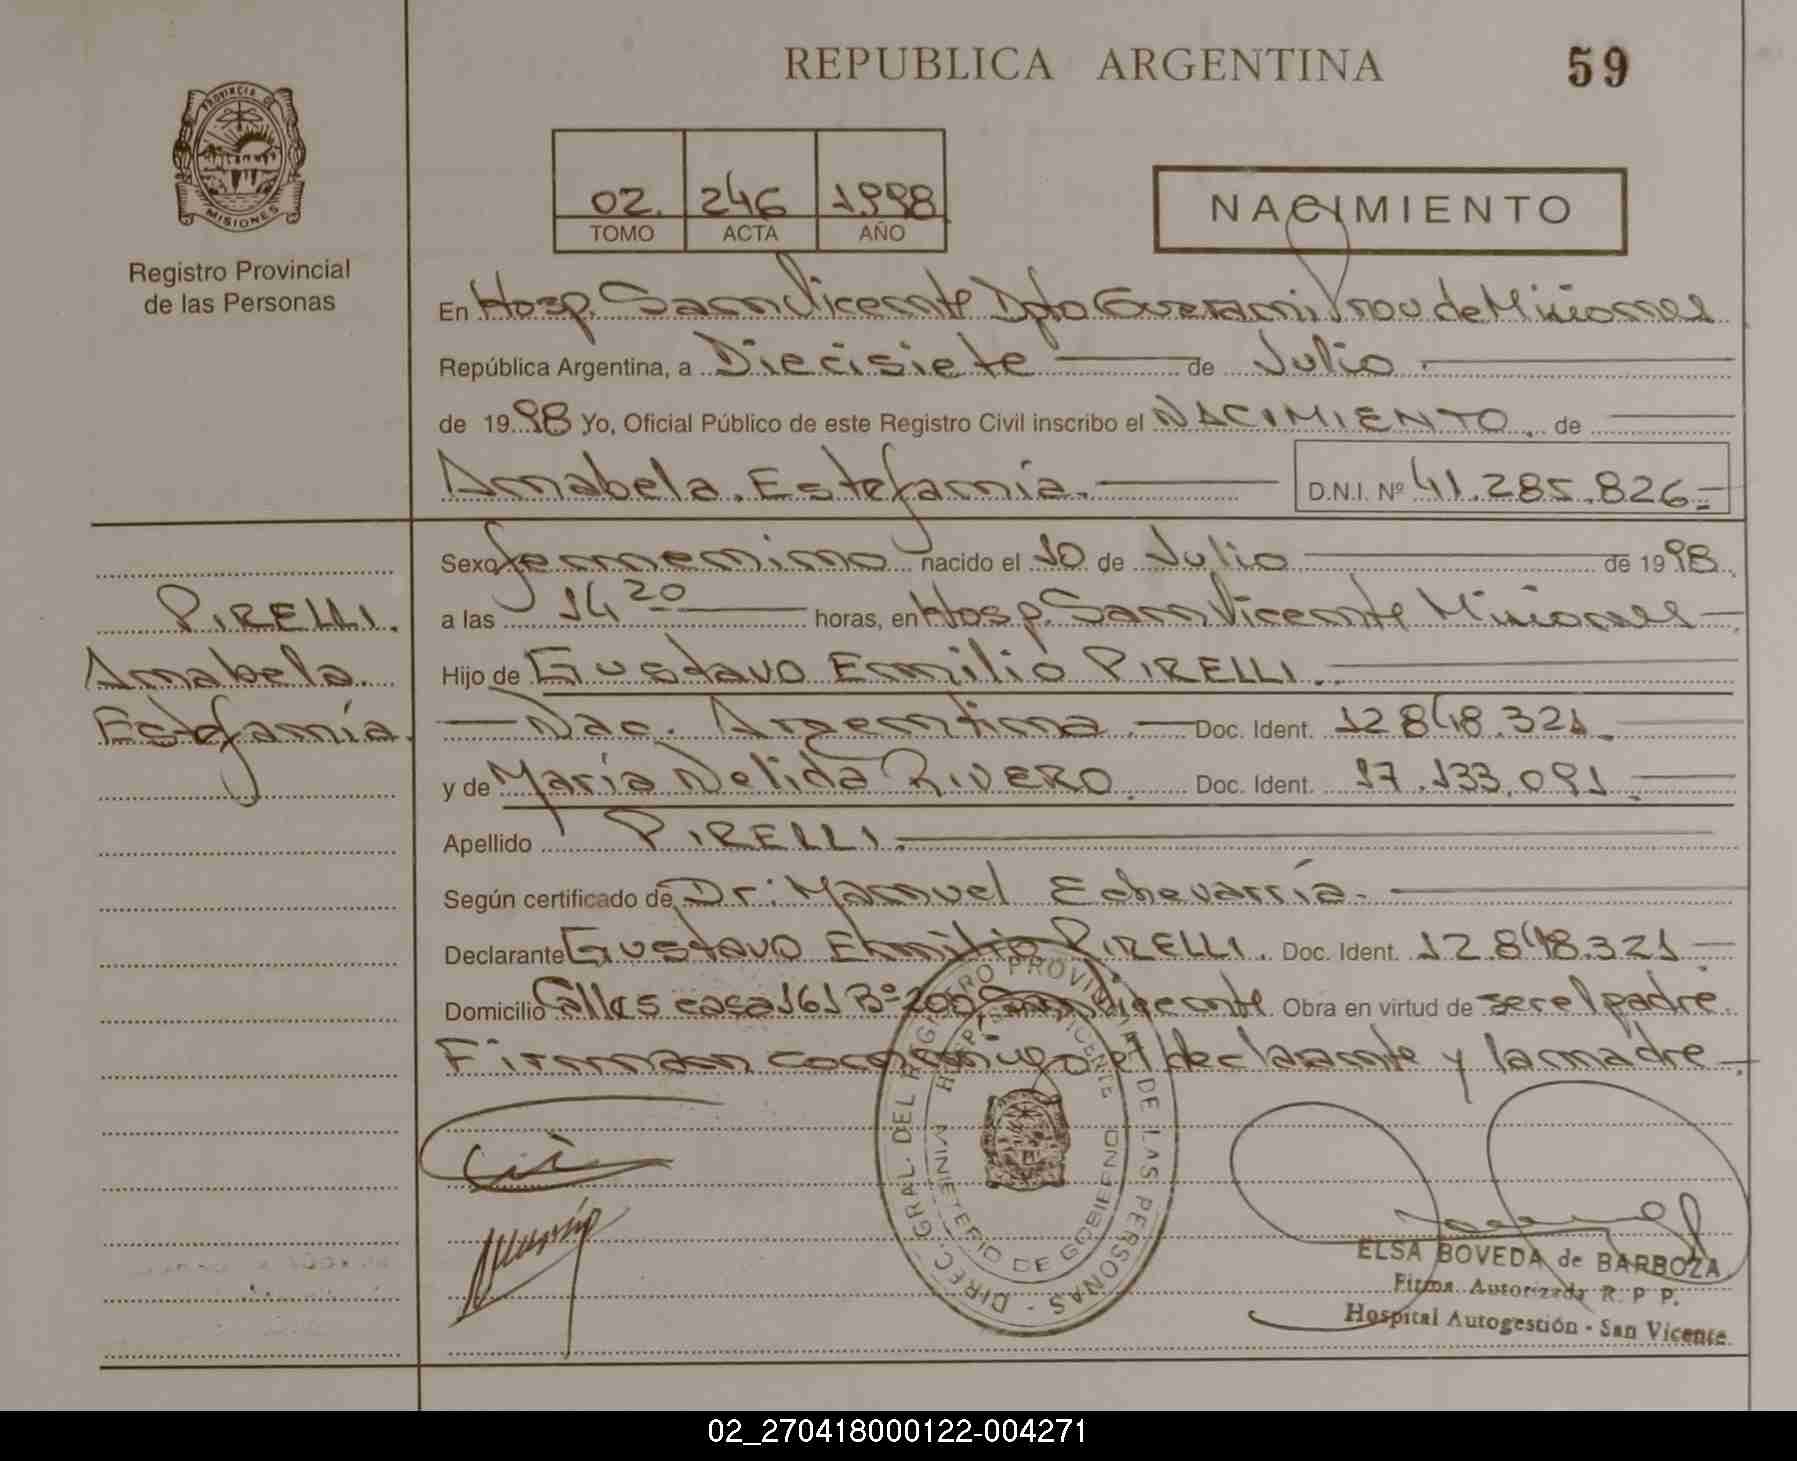 REPUBLICA ARGENTINA
59
PROVINCIA DE
MISIONES
Registro Provincial
de las Personas
02. 246 1998
TOMO ACTA AÑO
NACIMIENTO
En Hosp. San Vicente Dpto Guarani Prov de Misiones
República Argentina, a Diecisiete de Julio
de 1998 Yo, Oficial Público de este Registro Civil inscribo el NACIMIENTO. de
Annabela. Estefanía. D.N.I. Nº 41.285.826
PIRELLI.
Annabela.
Estefanía.
Sexo femenino nacido el 10 de Julio de 1998.
a las 14 20 horas, en Hosp. San Vicente Misiones
Hijo de Gustavo Emilio PIRELLI.
Nac. Argentina. Doc. Ident. 12.848.321.
y de María Nelida RIVERO. Doc. Ident. 17.133.091.
Apellido PIRELLI.
Según certificado de Dr: Manuel Echevarría.
Declarante Gustavo Emilio PIRELLI. Doc. Ident. 12.848.321
Domicilio casa 161 Bº 200, San Vicente Obra en virtud de ser el padre.
Firman conmigo el declarante y la madre
DIREC. GRAL. DEL REGISTRO PROVINCIAL DE LAS PERSONAS -
HOSP. SAN VICENTE
MINISTERIO DE GOBIERNO
ELSA BOVEDA de BARBOZA
Firma Autorizada R. P. P.
Hospital Autogestión - San Vicente
02_270418000122-004271